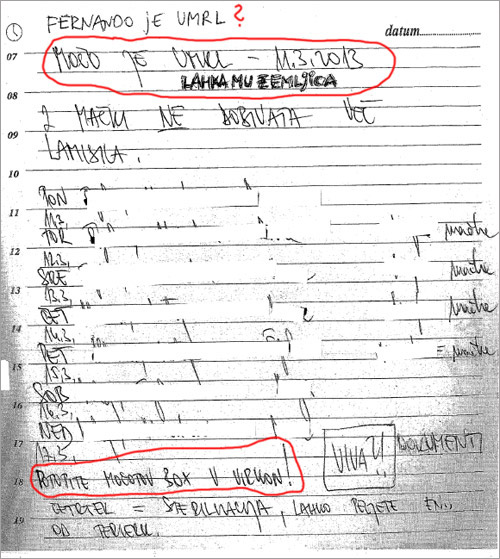 FERNANDO JE UMRL ?
datum
07 MOČO JE UMRL – 11.3.2013
LAHKA MU ZEMLJICA
08
2 MAČKI NE DOBIVATA VEČ
09
LAMISILA.
10
PON
11 11.3.
TOR
12 12.3.
SRE
13 13.3.
ČET
14 14.3.
PET
15 15.3.
SOB
16 16.3.
NED
17 17.3.
VIVA DOKUMENTI
18 POTOPITE MOČOTOV BOX V VIRKON!
ČETRTEK = STERILIZACIJA, LAHKO PELJETE EN..
19 OD